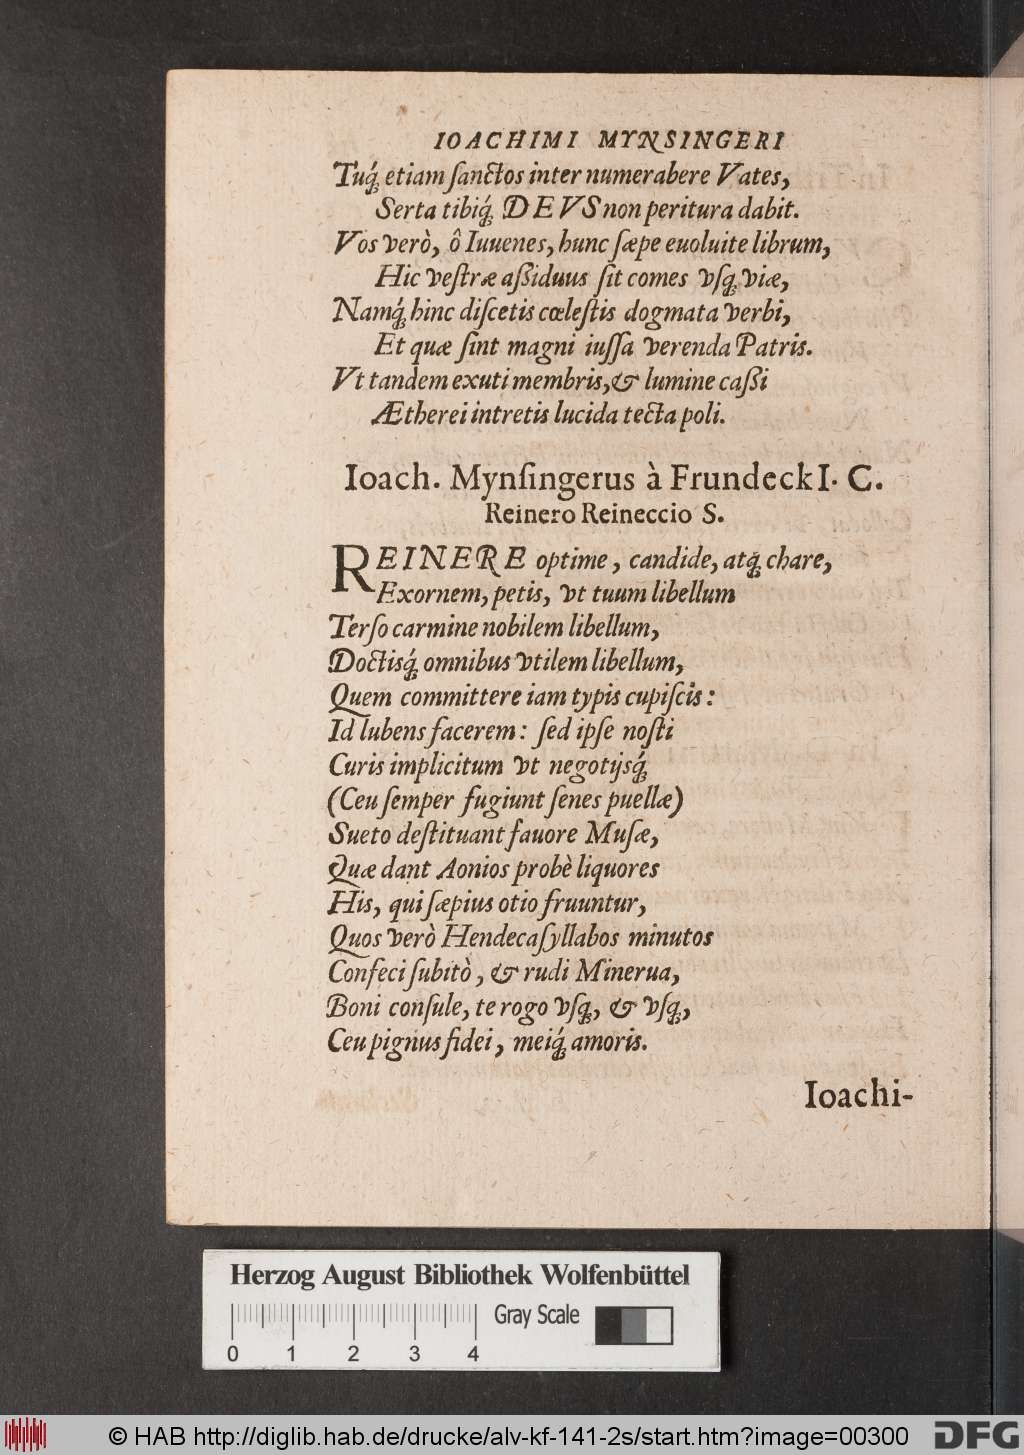 IOACHIMI MYNSINGERI
Tuq́ꝫ etiam ſanctos inter numerabere Vates,
Serta tibiq́ꝫ DEVS non peritura dabit.
Vos verò, ô Iuuenes, hunc ſæpe euoluite librum,
Hic veſtræ aßiduus ſit comes vſqꝫ viæ,
Namq́ꝫ hinc diſcetis cœleſtis dogmata verbi,
Et quæ ſint magni iuſſa verenda Patris.
Vt tandem exuti membris, & lumine caßi
Ætherei intretis lucida tecta poli.
Ioach. Mynſingerus à Frundeck I. C.
Reinero Reineccio S.
REINERE optime, candide, atqꝫ chare,
Exornem, petis, vt tuum libellum
Terſo carmine nobilem libellum,
Doctisq́ꝫ omnibus vtilem libellum,
Quem committere iam typis cupiſcis:
Id lubens facerem: ſed ipſe noſti
Curis implicitum vt negotijsq́ꝫ
(Ceu ſemper fugiunt ſenes puellæ)
Sueto deſtituant fauore Muſæ,
Quæ dant Aonios probè liquores
His, qui ſæpius otio fruuntur,
Quos verò Hendecaſyllabos minutos
Confeci ſubitò, & rudi Minerua,
Boni conſule, te rogo vſqꝫ, & vſqꝫ,
Ceu pignus fidei, meiq́ꝫ amoris.
Ioachi-
Herzog August Bibliothek Wolfenbüttel
Gray Scale
0 1 2 3 4
© HAB http://diglib.hab.de/drucke/alv-kf-141-2s/start.htm?image=00300
DFG